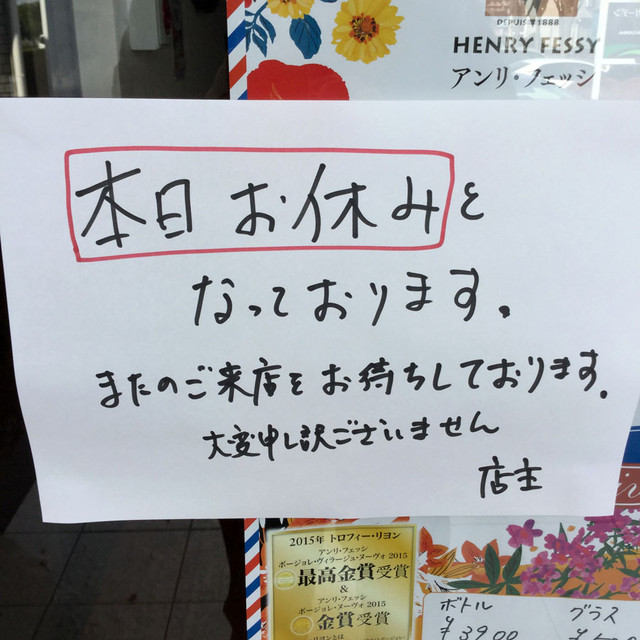 DEPUIS 1888
HENRY FESSY
アンリ・フェッシ
本日お休みと
なっております。
またのご来店をお待ちしております。
大変申し訳ございません
店主
2015年 トロフィー・リヨン
アンリ・フェッシ
ボージョレ・ヴィラージュ・ヌーヴォ 2015
最高金賞受賞
&
アンリ・フェッシ
ボージョレ・ヌーヴォ 2015
金賞受賞
リヨンとは
ボトル グラス
¥3900 ¥